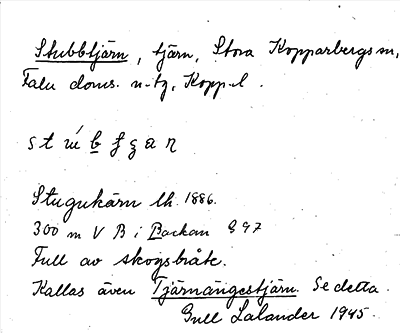 Stubbtjärn, tjärn, Stora Kopparbergs sn,
Falu doms. n-tg, Kopp. l.
Stugukärn lk. 1886.
300 m V B i Backan § 97
Full av skogsbråte.
Kallas även Tjärnängestjärn. Se detta.
Gull Lalander 1945.